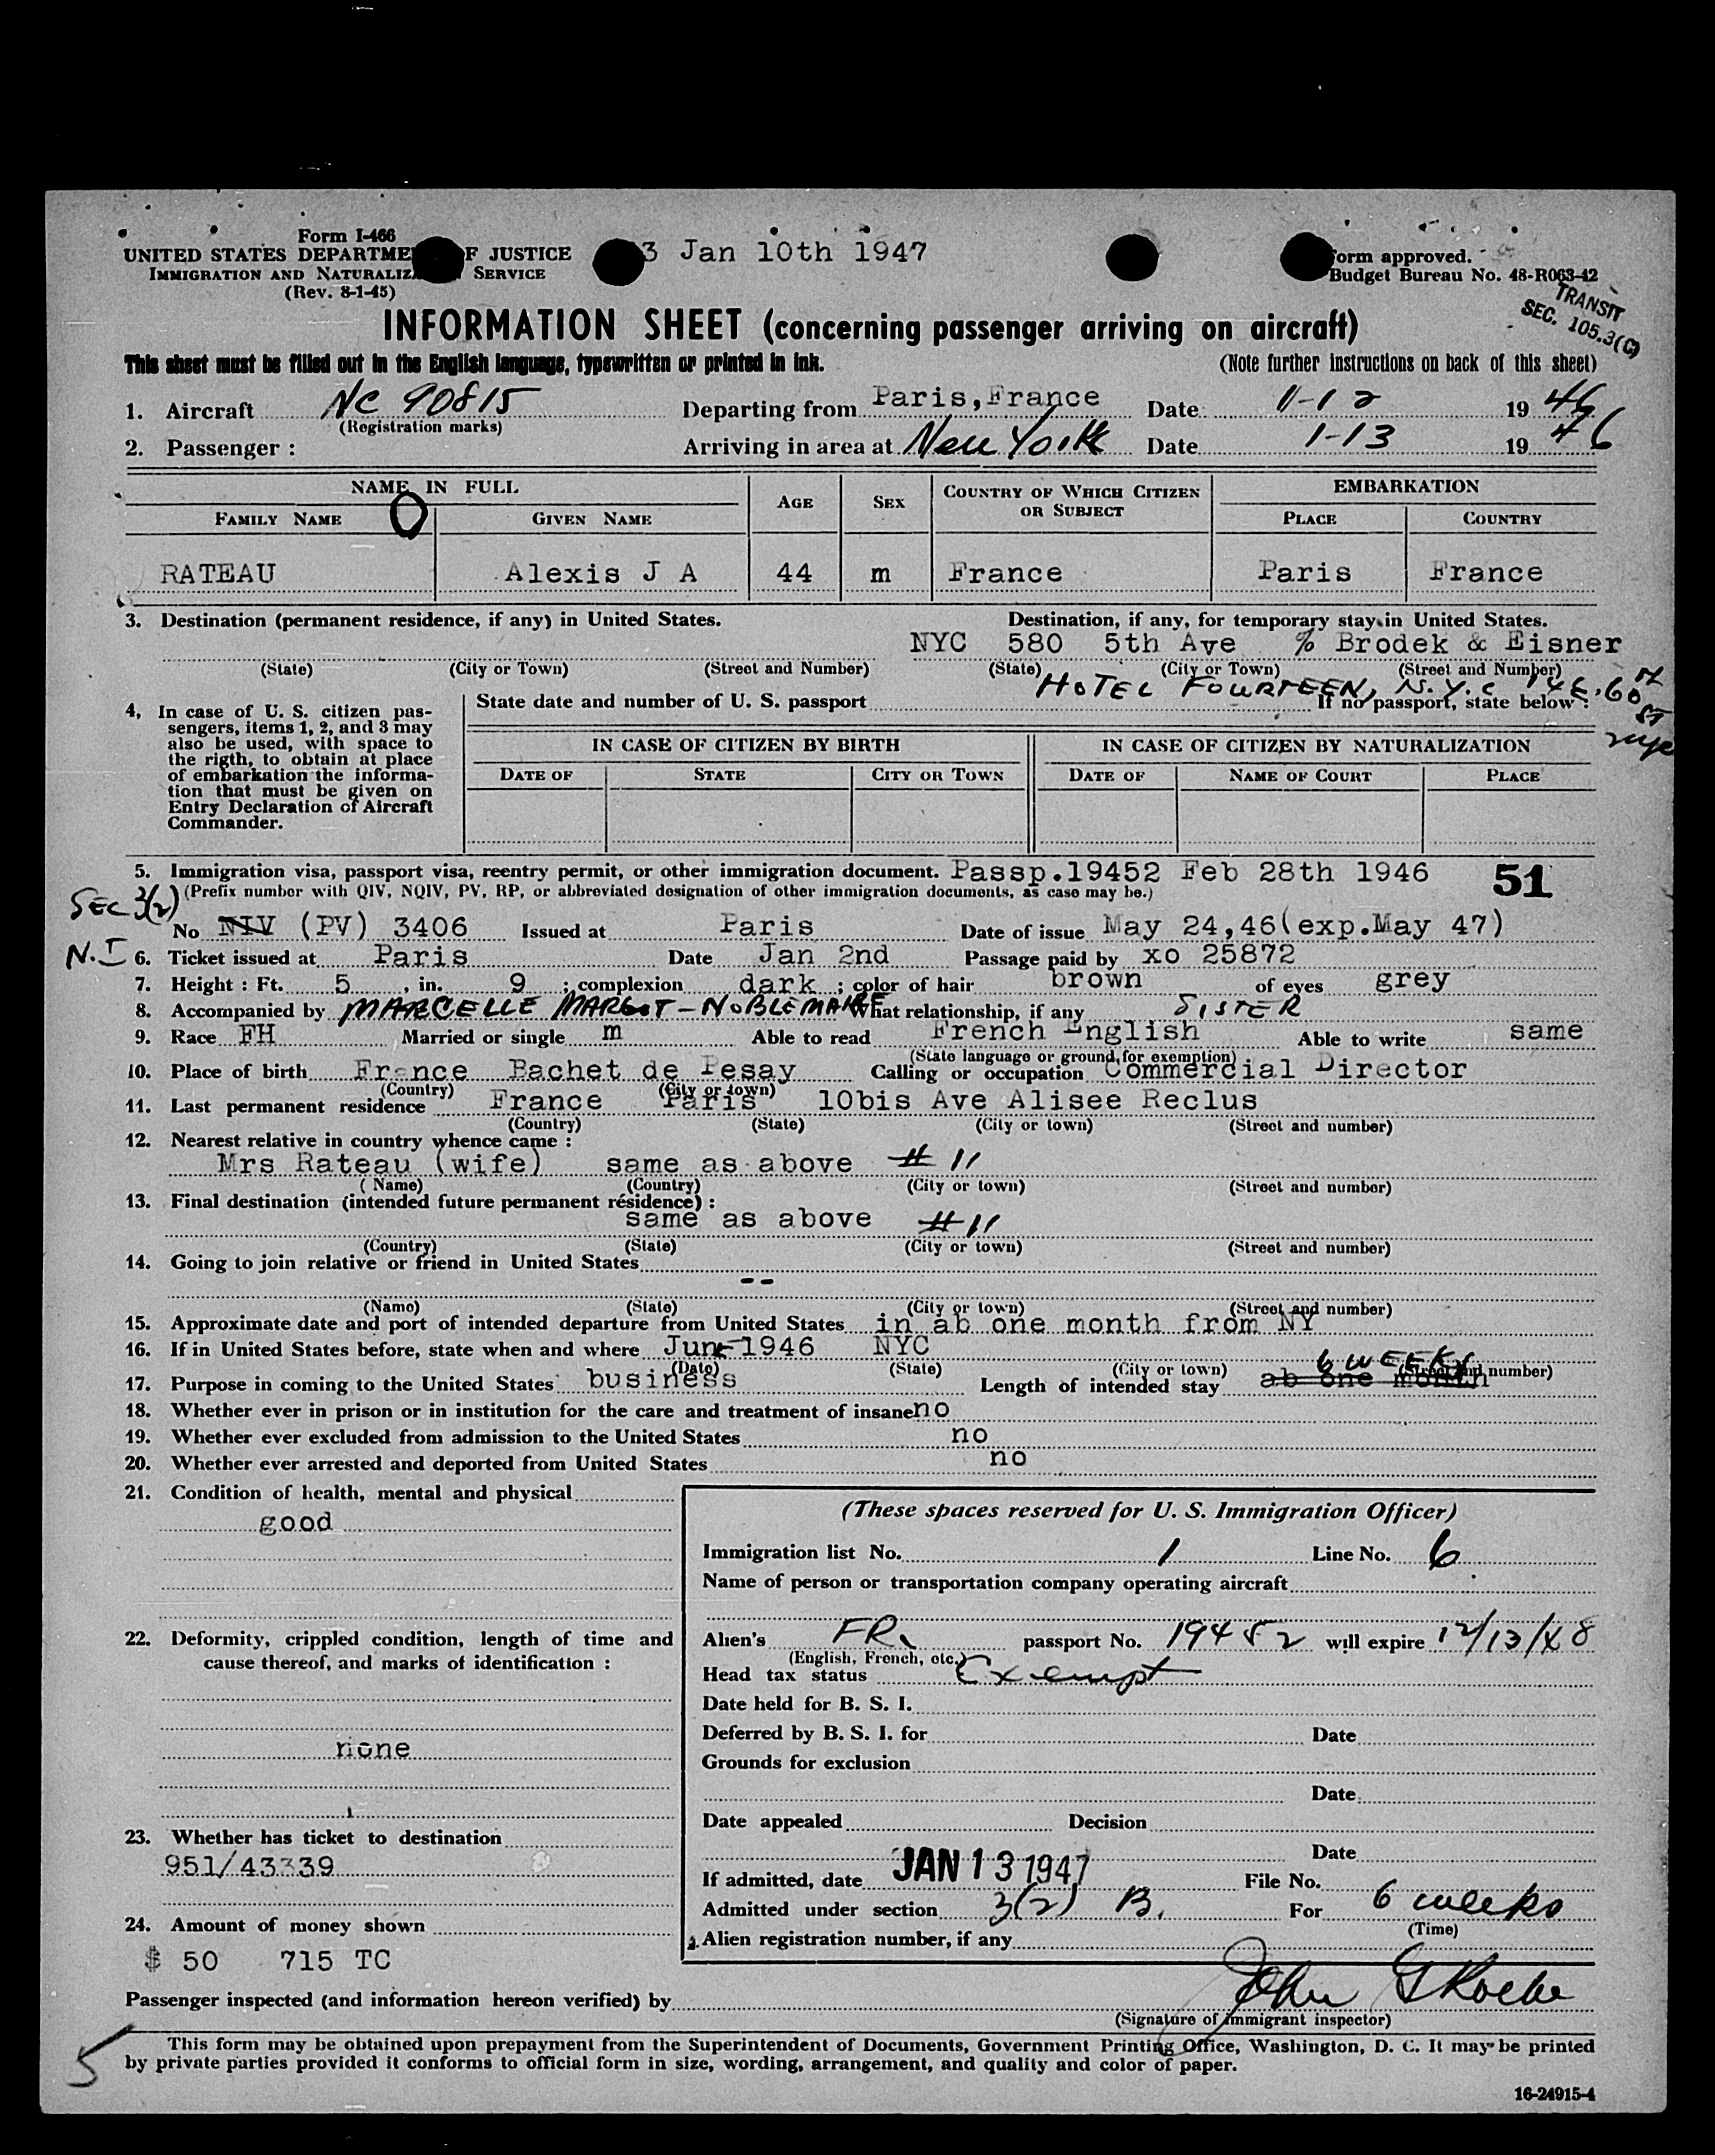 Form I-466
UNITED STATES DEPARTME F JUSTICE 3 Jan 10th 1947 orm approved.
IMMIGRATION AND NATURALIZ SERVICE Budget Bureau No. 48-R063-42
(Rev. 8-1-45)
TRANSIT
SEC. 105.3(C)
INFORMATION SHEET (concerning passenger arriving on aircraft)
This sheet must be filled out in the English language, typewritten or printed in ink. (Note further instructions on back of this sheet)
1. Aircraft NC 90815 Departing from Paris, France Date 1-12 1946
(Registration marks)
2. Passenger : Arriving in area at New York Date 1-13 1946
NAME IN FULL AGE SEX COUNTRY OF WHICH CITIZEN OR SUBJECT EMBARKATION
FAMILY NAME GIVEN NAME PLACE COUNTRY
RATEAU Alexis J A 44 m France Paris France
3. Destination (permanent residence, if any) in United States. Destination, if any, for temporary stay in United States.
NYC 580 5th Ave % Brodek & Eisner
(State) (City or Town) (Street and Number) (State) (City or Town) (Street and Number)
HOTEL FOURTEEN, N.Y.C 14 E. 60 St
4, In case of U. S. citizen passengers, items 1, 2, and 3 may also be used, with space to the rigth, to obtain at place of embarkation the information that must be given on Entry Declaration of Aircraft Commander.
State date and number of U. S. passport If no passport, state below :
IN CASE OF CITIZEN BY BIRTH IN CASE OF CITIZEN BY NATURALIZATION
DATE OF STATE CITY OR TOWN DATE OF NAME OF COURT PLACE
5. Immigration visa, passport visa, reentry permit, or other immigration document. Passp.19452 Feb 28th 1946 51
SEC 3(2) (Prefix number with QIV, NQIV, PV, RP, or abbreviated designation of other immigration documents, as case may be.)
No NIV (PV) 3406 Issued at Paris Date of issue May 24,46(exp.May 47)
N.I 6. Ticket issued at Paris Date Jan 2nd Passage paid by xo 25872
7. Height : Ft. 5 , in. 9 ; complexion dark ; color of hair brown of eyes grey
8. Accompanied by MARCELLE MARGOT-NOBLEMAIRE What relationship, if any SISTER
9. Race FH Married or single m Able to read French English Able to write same
(State language or ground for exemption)
10. Place of birth France Bachet de Pesay Calling or occupation Commercial Director
(Country) (City or town)
11. Last permanent residence France Paris 10bis Ave Alisee Reclus
(Country) (State) (City or town) (Street and number)
12. Nearest relative in country whence came :
Mrs Rateau (wife) same as above # 11
(Name) (Country) (City or town) (Street and number)
13. Final destination (intended future permanent résidence) :
same as above #11
(Country) (State) (City or town) (Street and number)
14. Going to join relative or friend in United States
--
(Name) (State) (City or town) (Street and number)
15. Approximate date and port of intended departure from United States in ab one month from NY
16. If in United States before, state when and where June 1946 NYC
(Date) (State) (City or town) (Street and number)
6 WEEKS
17. Purpose in coming to the United States business Length of intended stay ab one month
18. Whether ever in prison or in institution for the care and treatment of insane no
19. Whether ever excluded from admission to the United States no
20. Whether ever arrested and deported from United States no
21. Condition of health, mental and physical
good
22. Deformity, crippled condition, length of time and cause thereof, and marks of identification :
none
23. Whether has ticket to destination
951/43339
24. Amount of money shown
$ 50 715 TC
(These spaces reserved for U. S. Immigration Officer)
Immigration list No. 1 Line No. 6
Name of person or transportation company operating aircraft
Alien's FR. passport No. 19452 will expire 12/13/48
(English, French, etc.)
Head tax status Exempt
Date held for B. S. I.
Deferred by B. S. I. for Date
Grounds for exclusion
Date
Date appealed Decision
Date
If admitted, date JAN 13 1947 File No.
Admitted under section 3(2) B. For 6 weeks
(Time)
Alien registration number, if any
Passenger inspected (and information hereon verified) by John G
(Signature of immigrant inspector)
5 This form may be obtained upon prepayment from the Superintendent of Documents, Government Printing Office, Washington, D. C. It may be printed
by private parties provided it conforms to official form in size, wording, arrangement, and quality and color of paper.
16-24915-4